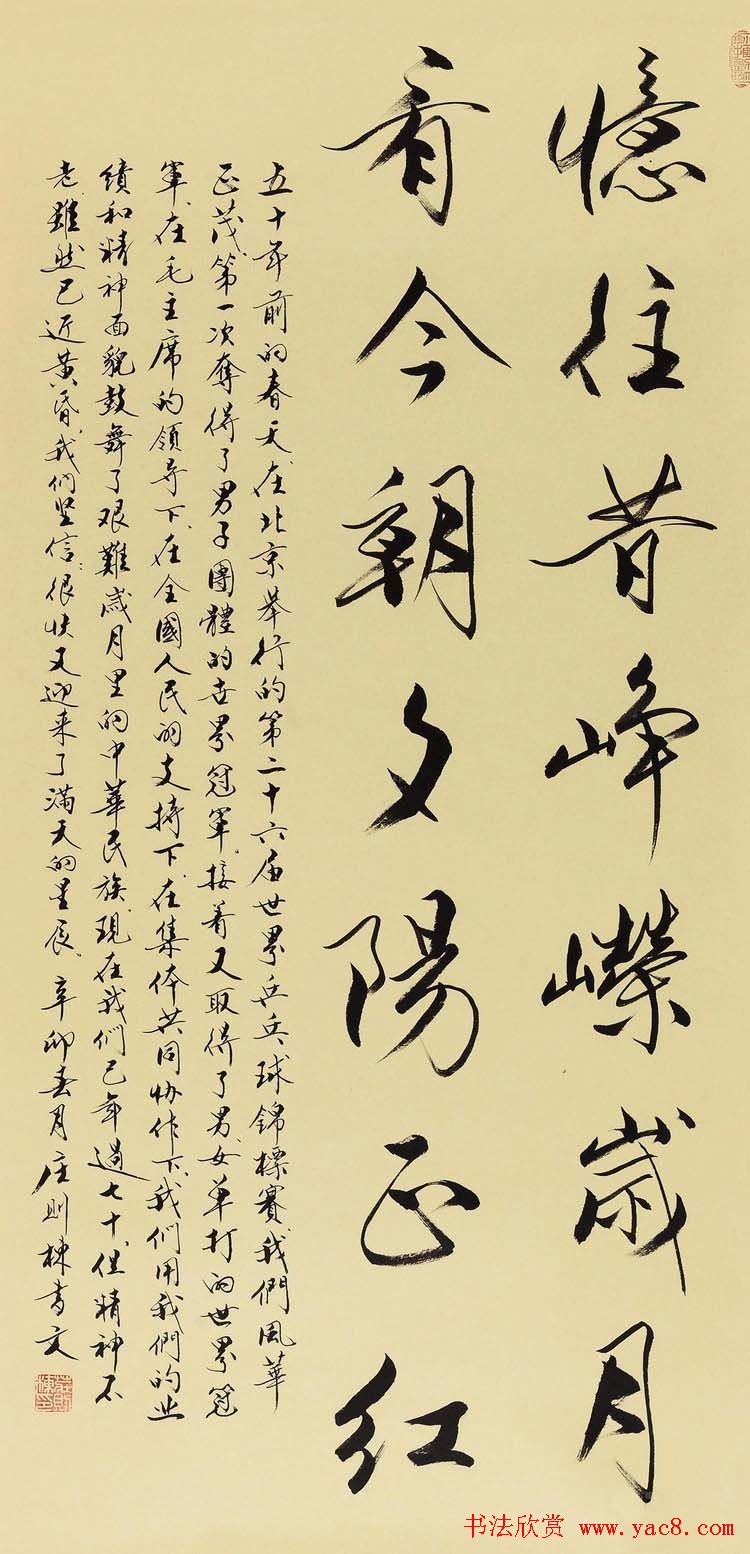 憶往昔崢嶸歲月
看今朝夕陽正紅
五十年前的春天、在北京舉行的第二十六届世界乒乓球錦標賽、我們風華
正茂、第一次奪得了男子團體的世界冠軍、接着又取得了男、女單打的世界冠
軍、在毛主席的領导下、在全國人民的支持下、在集体共同协作下、我们用我們的业
績和精神面貌鼓舞了艰難歲月里的中華民族、現在我們已年過七十、但精神不
老、雖然已近黄昏、我们坚信：很快又迎来了满天的星辰。辛卯春月庄則棟書文
莊則棟印
书法欣赏 www.yac8.com